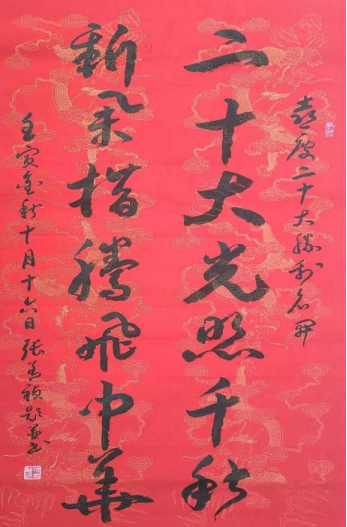 喜庆二十大胜利召开
二十大光照千秋
新举措腾飞中华
壬寅金秋十月十六日张题并书